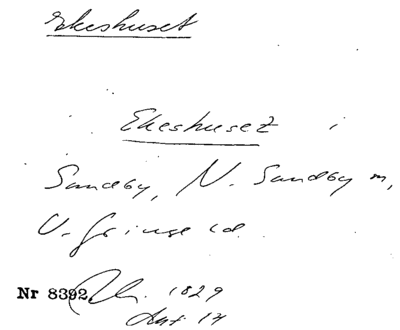 Ekeshuset
Ekeshuset i
Sandby, N. Sandby sn,
V. Göinge hd.
Nr 8392 1829